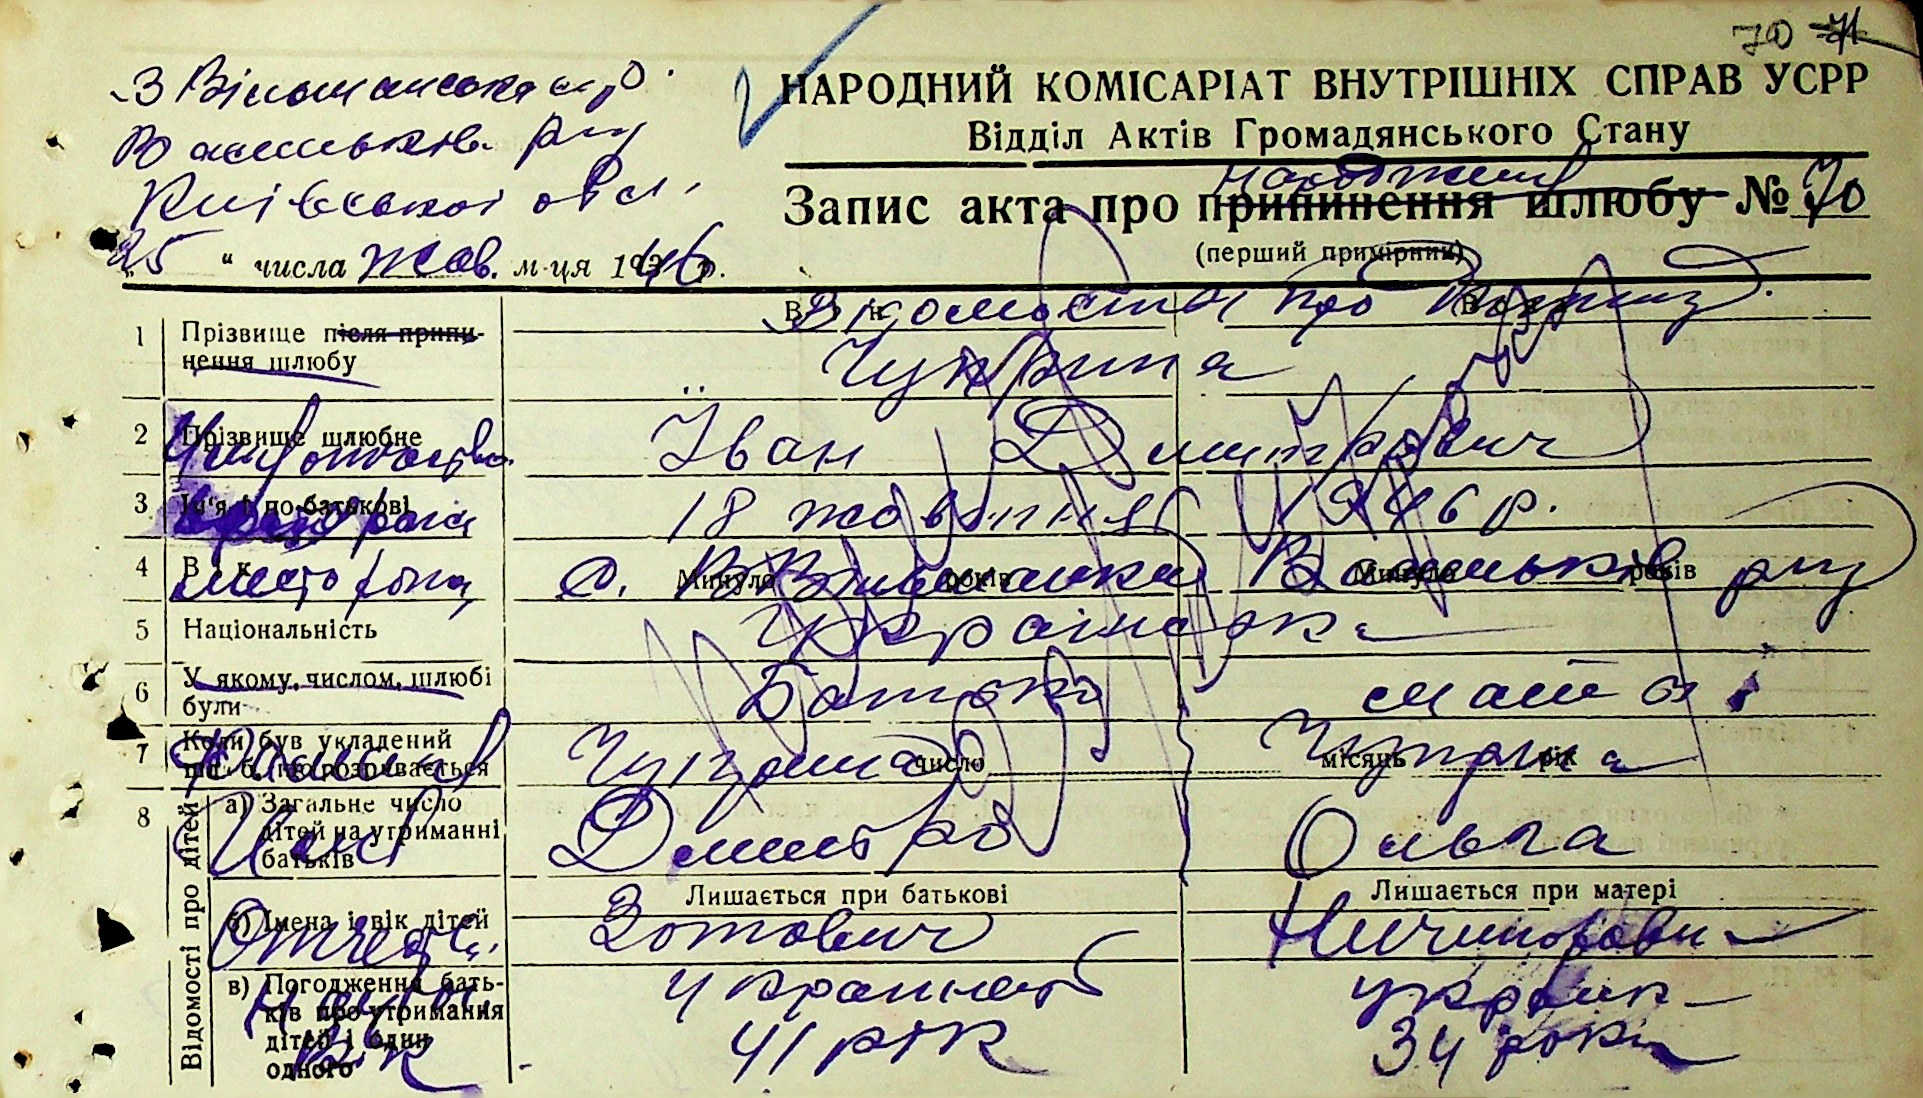 70 71
З Вільшанська с/р
Васильків. р-ну
Київської обл.
НАРОДНИЙ КОМІСАРІАТ ВНУТРІШНІХ СПРАВ УСРР
Відділ Актів Громадянського Стану
народження
Запис акта про припинення шлюбу № 70
(перший примірник)
"25" числа жов. м-ця 1946 р.
Відомості про
1 Прізвище після припи-
нення шлюбу
Чуприна
2 Прізвище шлюбне
Іван Дмитрович
3 Ім'я і по-батькові
18 жовтня 1946 р.
4 Вік Минуло років Минуло років
с. Вільшанка Васильків р-ну
5 Національність
Українка
6 У якому, числом, шлюбі
були
Батько мати
7 Коли був укладений
шлюб, що розривається
число місяць рік
Фамилия Чуприна Чуприна
8 Відомості про дітей
а) Загальне число
дітей на утриманні
батьків
Имя Дмитро Ольга
Лишається при батькові Лишається при матері
б) Імена і вік дітей
Отчеств. Зотович Ничипоровн
в) Погодження бать-
ків про утримання
дітей і один
одного
українец україн
Вік 41 рік 34 роки